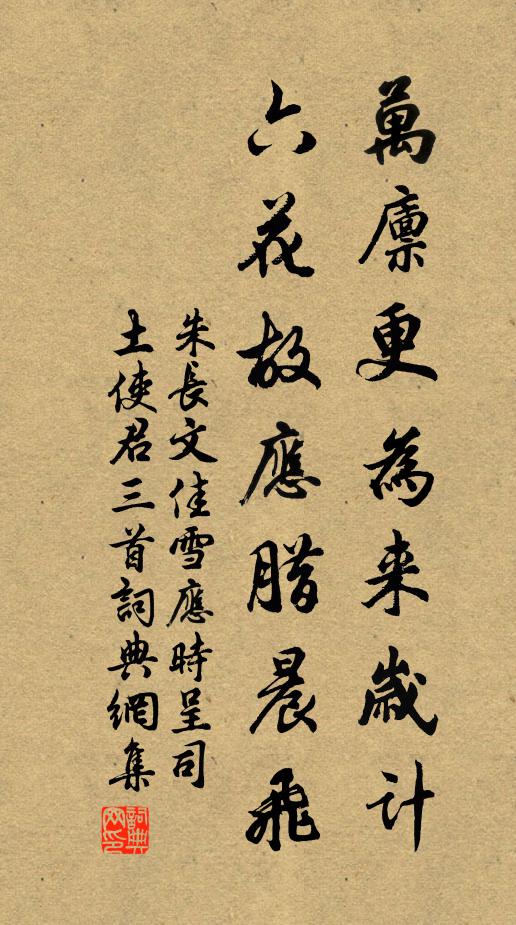 萬廪更為来歲计
六花故應腊晨飛
朱長文佳雪應時呈司
土使君三首詞典網集
詞典网印